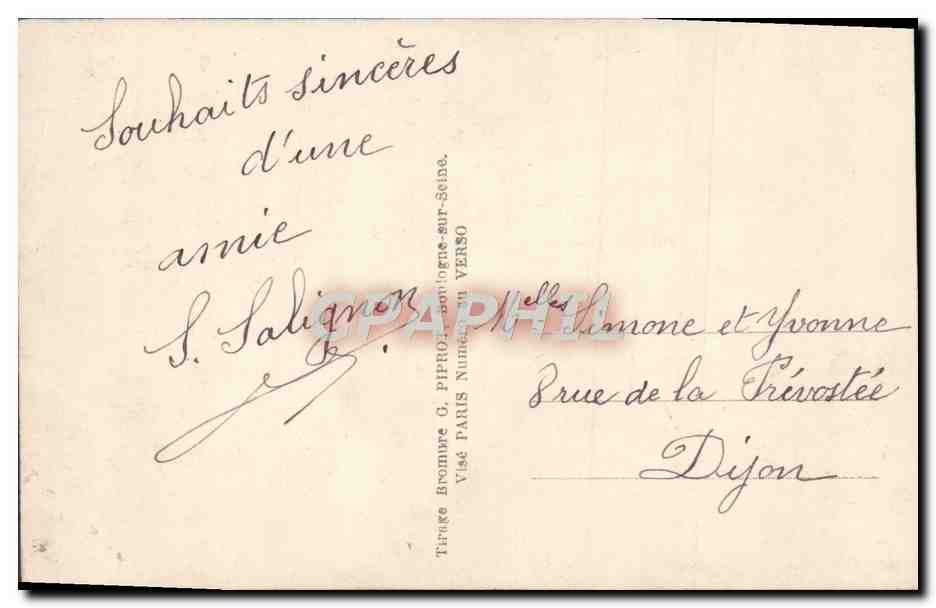 Souhaits sincères
d'une
amie
S. Salignon
Tirage Bromure G. PIPROT, Boulogne-sur-Seine.
Visé PARIS Numéro au VERSO
Melles Simone et Yvonne
8 rue de la Prévostée
Dijon
CPAPHIL